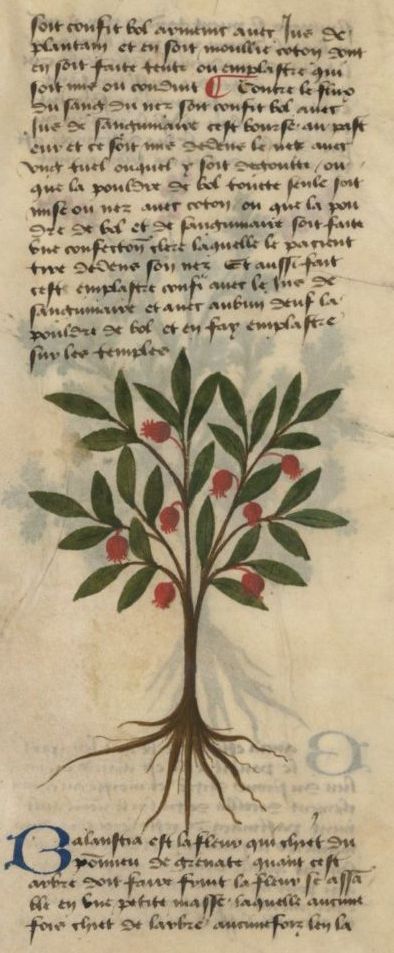 soit confit bol armenic avec Jus de
plantain et en soit moullie coton dont
en soit faite tente ou emplastre qui
soit mis ou conduit ¶ Contre le flux
du sang du nez soit confit bol avec
Jus de sanguinaire cest bourse au past
eur et ce soit mis dedens le nez avec
ung tuel ouquel y soit degoutte ou
que la pouldre de bol toute seule soit
mise ou nez avec coton ou que la poul
dre de bol et de sanguinaire soit faite
une confection clere laquelle le pacient
tire dedens son nez Et aussi fait
ceste emplastre confi avec le Jus de
sanguinaire et avec aubun deuf la
pouldre de bol et en fay emplastre
sur les temples
Balaustia est la fleur qui chiet du
pommier de grenate quant cest
arbre doit faire fruit la fleur se assa
ble en une petite masse laquelle aucune
fois chiet de larbre aucunefoiz len la